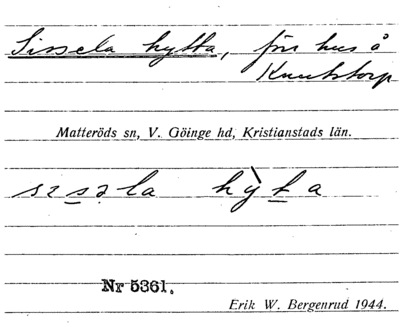 Sissela hytta, förr hus å
Knutstorp
Matteröds sn, V. Göinge hd, Kristianstads län.
sɪsəla hỳta
Nr 5361.
Erik W. Bergenrud 1944.